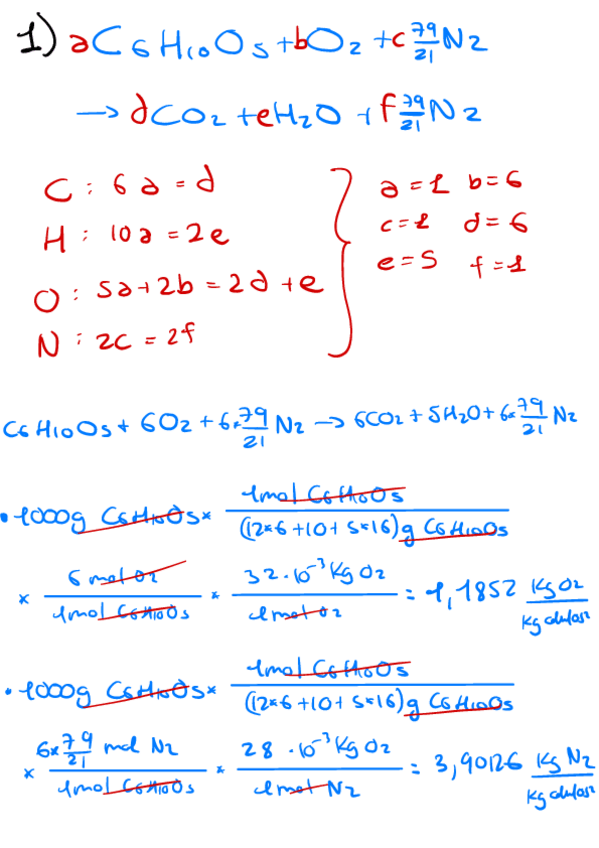 1) aC6H10O5 + bO2 + c 79/21 N2
→ dCO2 + eH2O + f 79/21 N2
C : 6a = d
H : 10a = 2e
O : 5a + 2b = 2d + e
N : 2c = 2f
a = 1 b = 6
c = 1 d = 6
e = 5 f = 1
C6H10O5 + 6O2 + 6x 79/21 N2 → 6CO2 + 5H2O + 6x 79/21 N2
• 1000g C6H10O5 x 1mol C6H10O5 / (12x6 + 10 + 5x16) g C6H10O5
x 6 mol O2 / 1mol C6H10O5 x 32·10^-3 Kg O2 / 1 mol O2 = 1,1852 Kg O2 / Kg celulosa
• 1000g C6H10O5 x 1mol C6H10O5 / (12x6 + 10 + 5x16) g C6H10O5
x 6x 79/21 mol N2 / 1mol C6H10O5 x 28 ·10^-3 Kg O2 / 1 mol N2 = 3,90126 Kg N2 / Kg celulosa